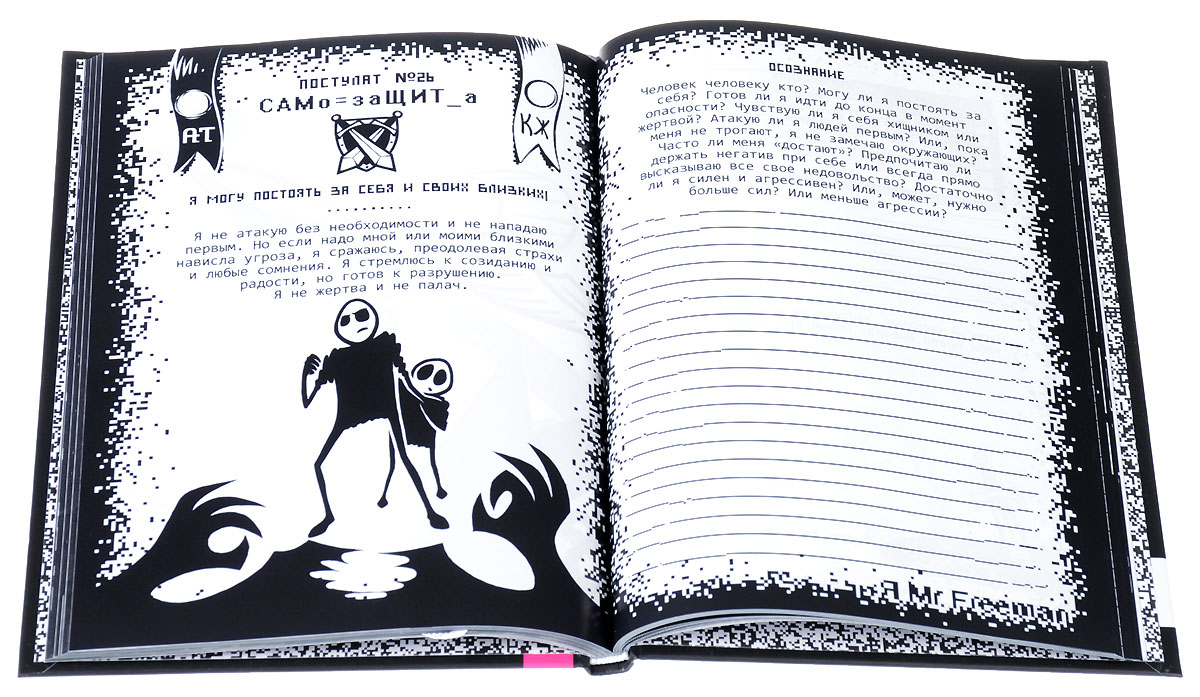 ПОСТУЛАТ №26
САМо=заЩИТ_а
А:Т
КЖ
Я МОГУ ПОСТОЯТЬ ЗА СЕБЯ И СВОИХ БЛИЗКИХ|
Я не атакую без необходимости и не нападаю
первым. Но если надо мной или моими близкими
нависла угроза, я сражаюсь, преодолевая страхи
и любые сомнения. Я стремлюсь к созиданию и
радости, но готов к разрушению.
Я не жертва и не палач.
ОСОЗНАНИЕ
Человек человеку кто? Могу ли я постоять за
себя? Готов ли я идти до конца в момент
опасности? Чувствую ли я себя хищником или
жертвой? Атакую ли я людей первым? Или, пока
меня не трогают, я не замечаю окружающих?
Часто ли меня «достают»? Предпочитаю ли
держать негатив при себе или всегда прямо
высказываю все свое недовольство? Достаточно
ли я силен и агрессивен? Или, может, нужно
больше сил? Или меньше агрессии?
Я Mr.Freeman